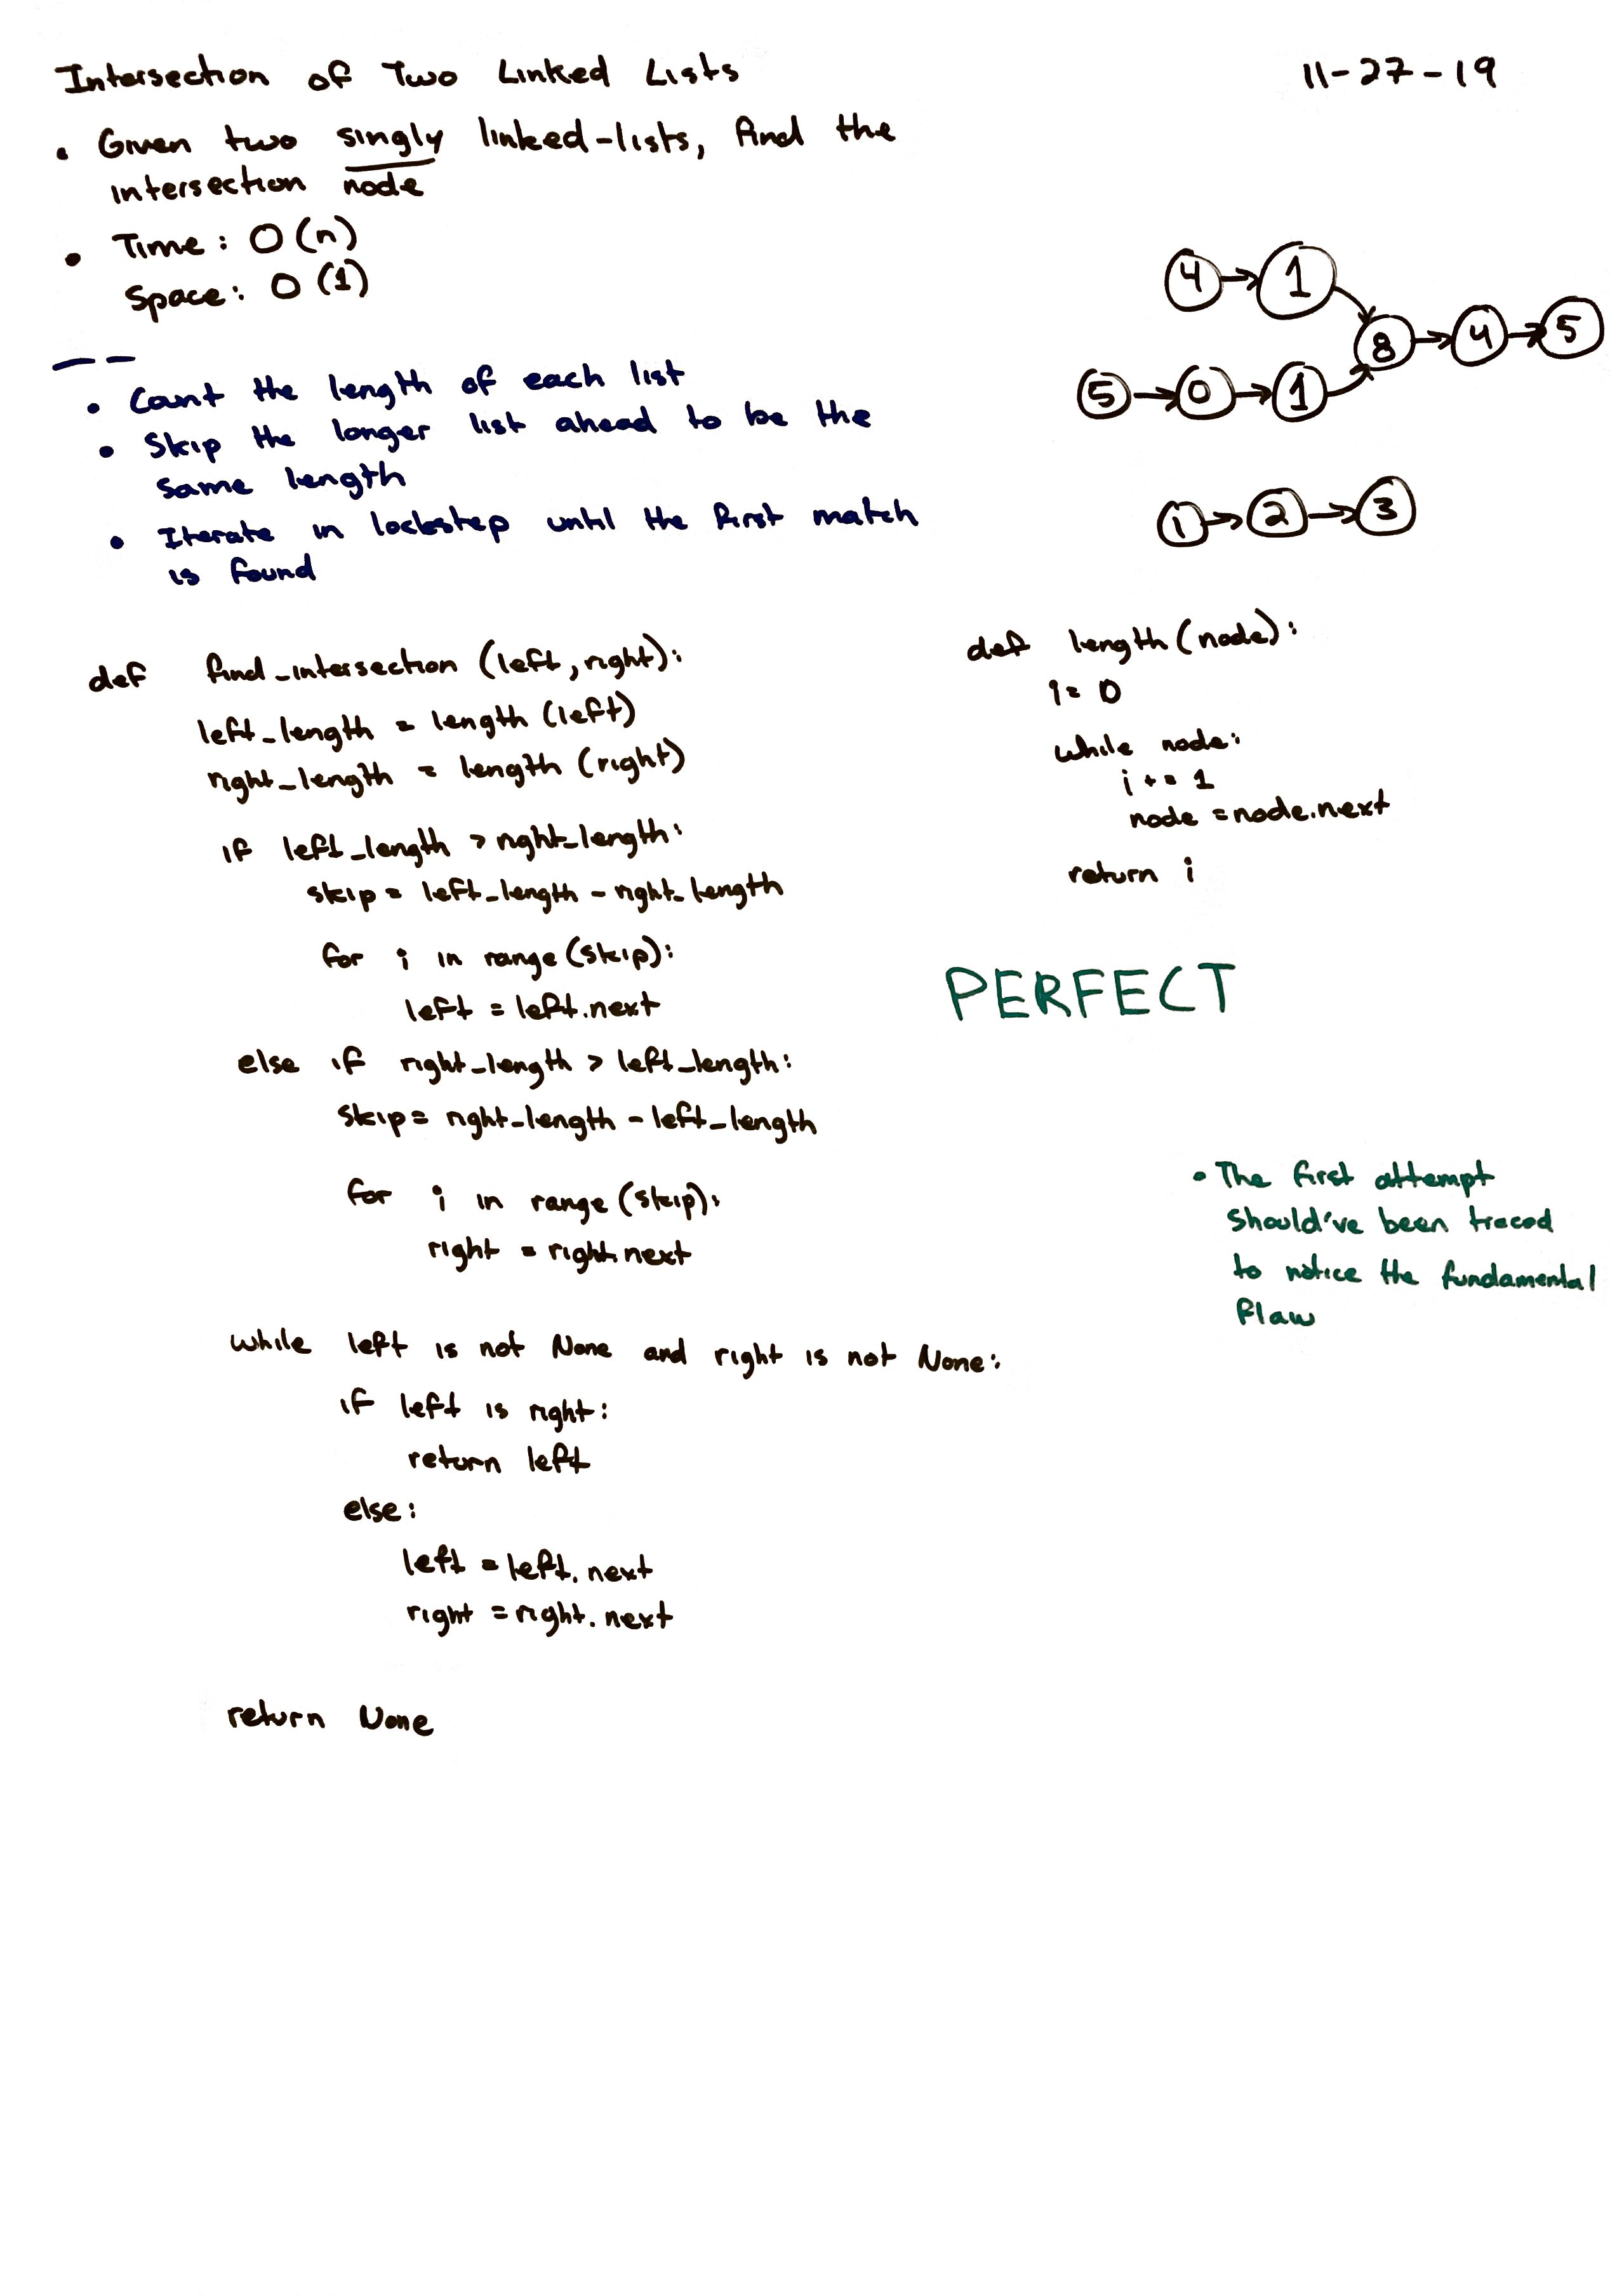 Intersection of Two Linked Lists
11-27-19
• Given two singly linked-lists, find the
intersection node
• Time: O(n)
Space: O(1)
4 → 1
8 → 4 → 5
5 → 0 → 1
1 → 2 → 3
• Count the length of each list
• Skip the longer list ahead to be the
same length
• Iterate in lockstep until the first match
is found
def find_intersection (left, right):
left_length = length (left)
right_length = length (right)
if left_length > right_length:
skip = left_length - right_length
for i in range (skip):
left = left.next
else if right_length > left_length:
skip = right_length - left_length
for i in range (skip):
right = right.next
while left is not None and right is not None:
if left is right:
return left
else:
left = left.next
right = right.next
return None
def length (node):
i = 0
while node:
i += 1
node = node.next
return i
PERFECT
• The first attempt
should've been traced
to notice the fundamental
flaw